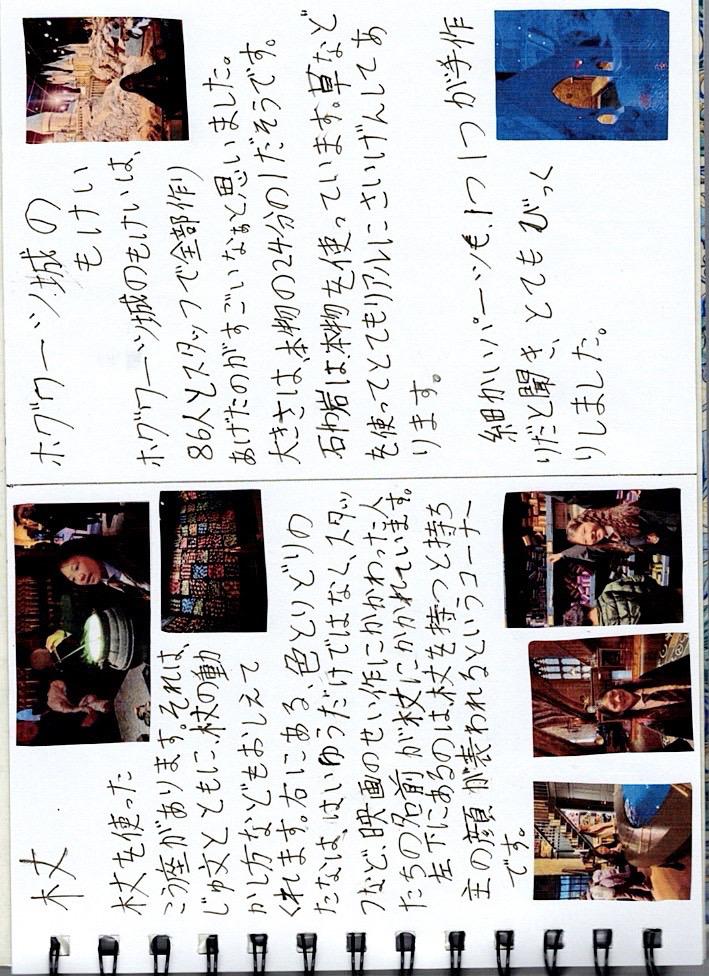 杖
杖を使った
こう座があります。それは、
じゅ文とともに、杖の動
かし方などもおしえて
くれます。右にある、色とりどりの
たなは、はいゆうだけではなく、スタッ
フなど、映画のせい作にかかわった人
たちの名前が杖にかかれています。
左下にあるのは、杖を持つと持ち
主の顔が表われるというコーナー
です。
ホグワーツ城の
もけい
ホグワーツ城のもけいは、
86人とスタッフで全部作り
あげたのがすごいなぁと思いました。
大きさは、本物の24分の1だそうです。
石や岩は本物を使っています。草など
を使ってとてもリアルにさいげんしてあ
ります。
細かいパーツも、1つ1つが手作
りだと聞き、とてもびっく
りしました。